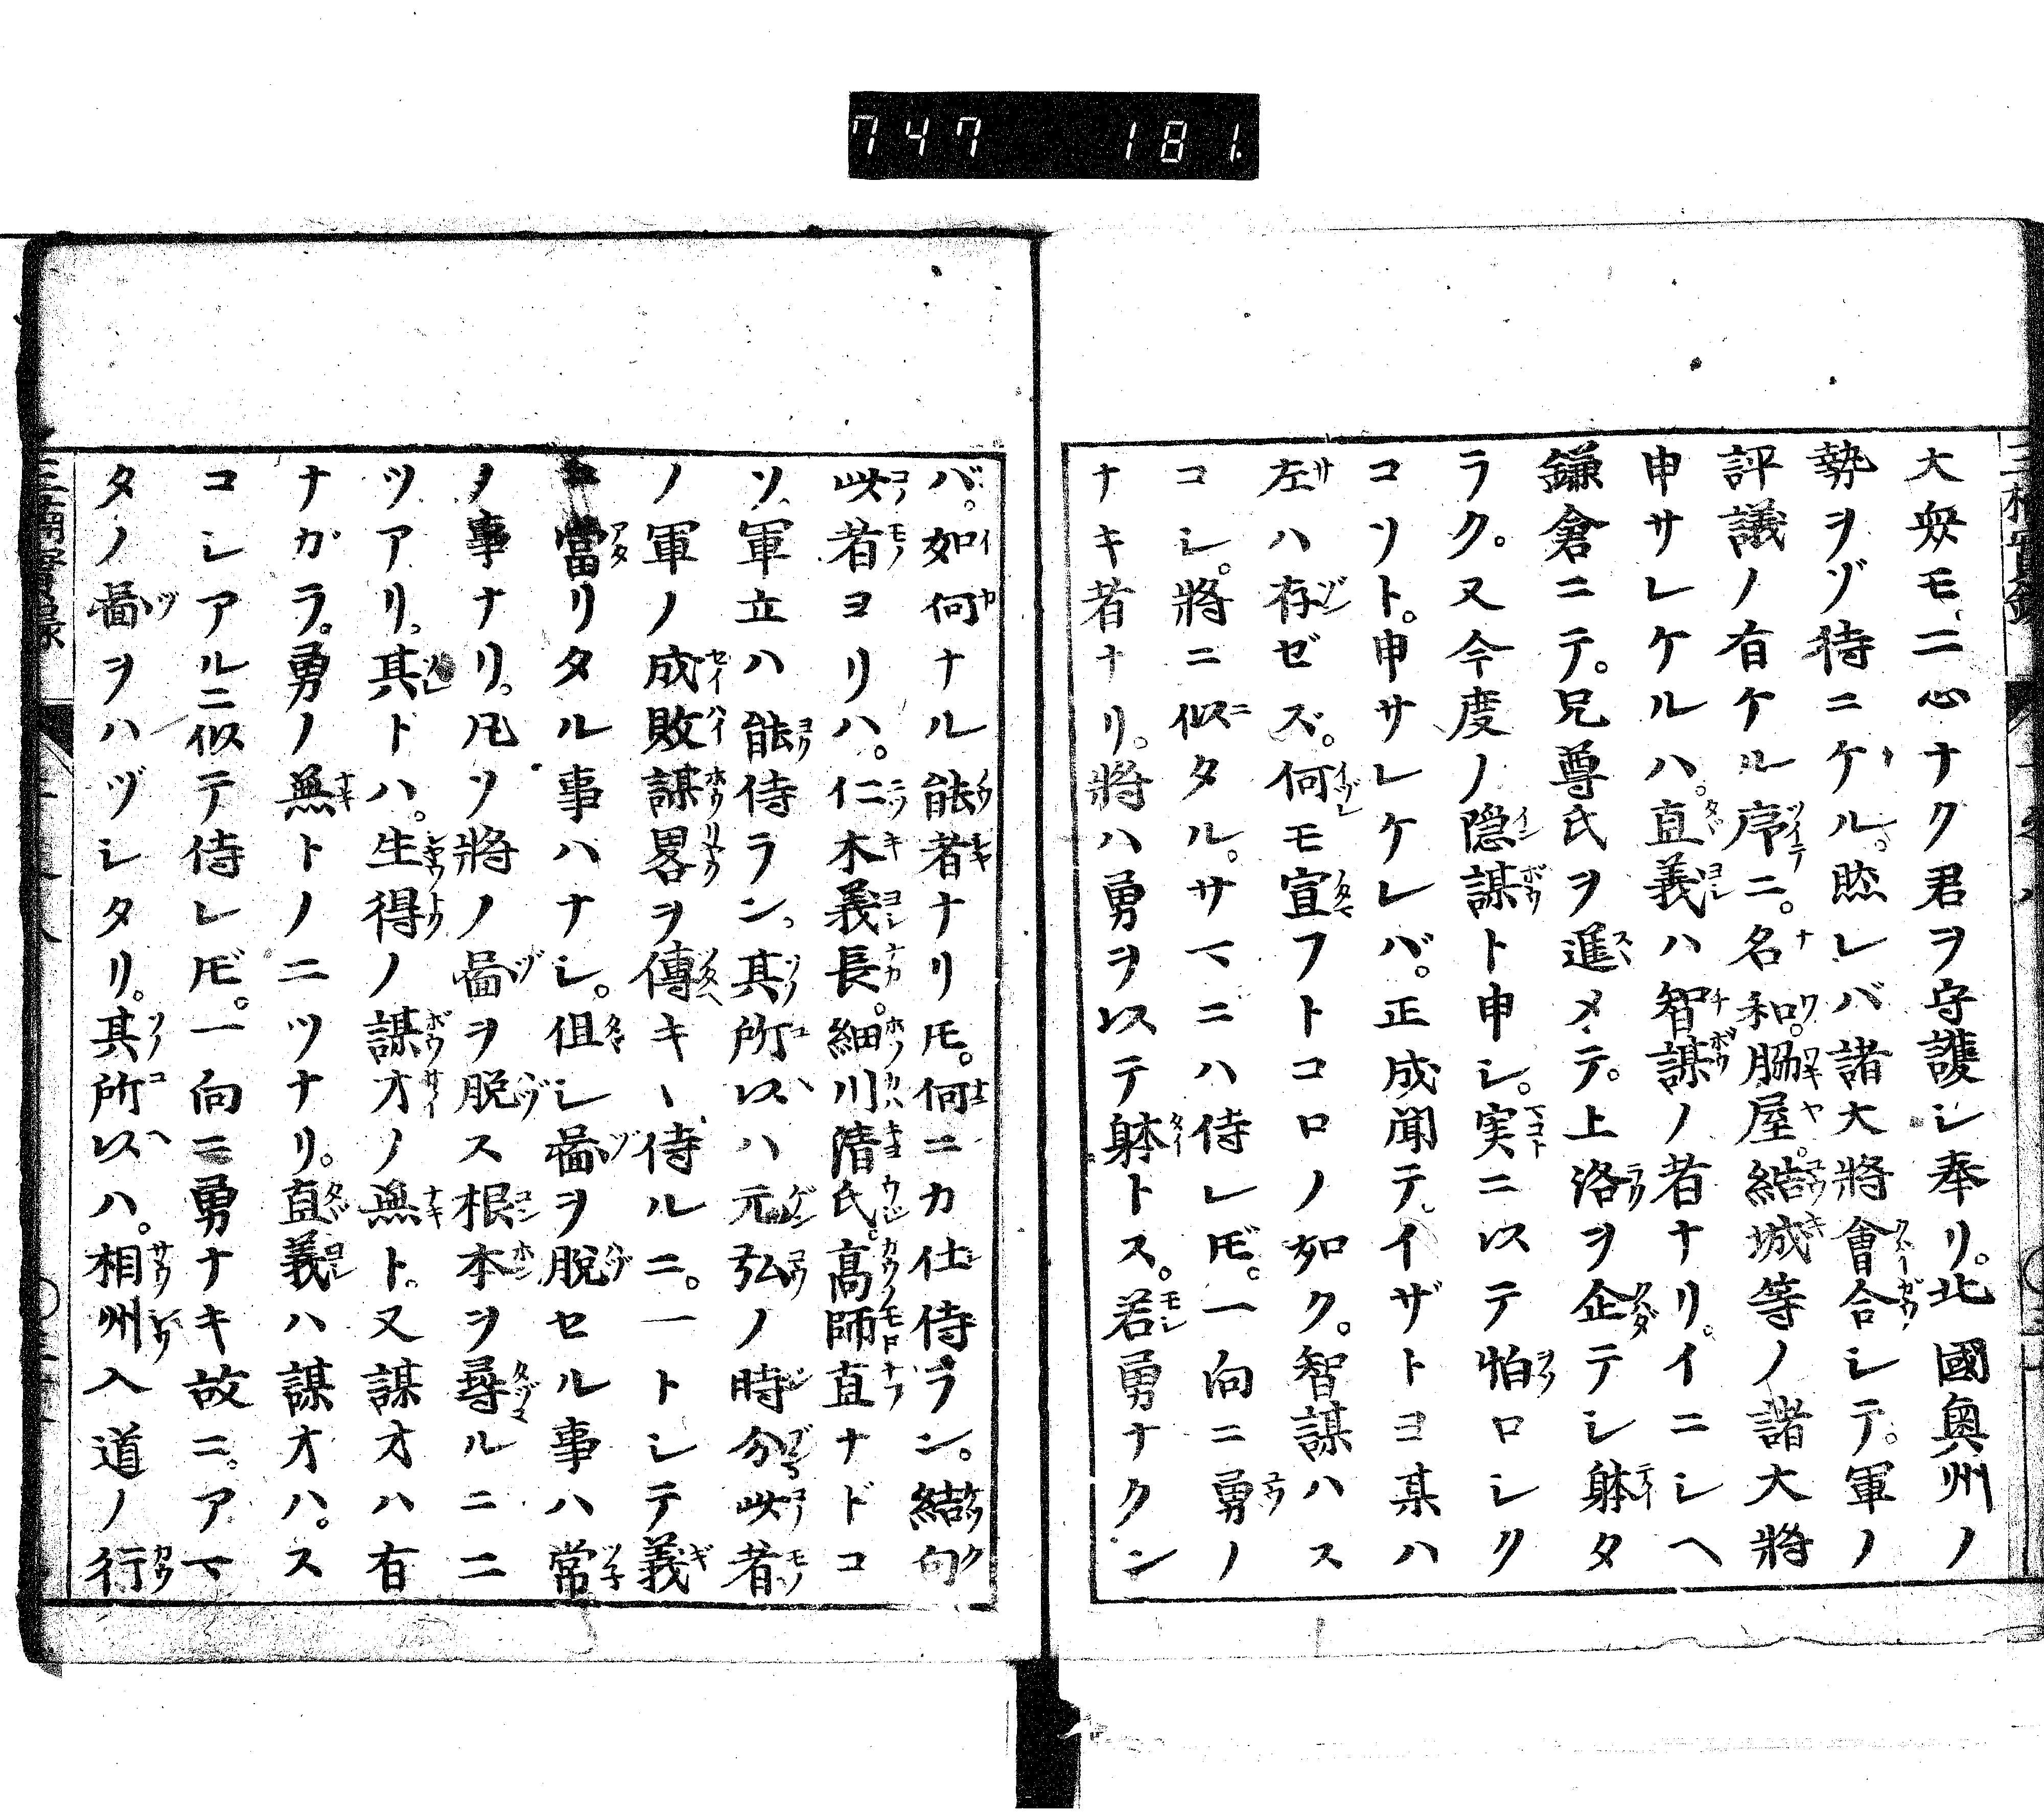 747 181.
大衆モ、二心ナク君ヲ守護シ奉リ。北國奥州ノ
勢ヲゾ待ニケル。然レバ諸大將會合シテ。軍ノ
評議ノ有ケル序ニ。名和。脇屋。結城等ノ諸大將
申サレケルハ。直義ハ智謀ノ者ナリ。イニシヘ
鎌倉ニテ。兄尊氏ヲ進メテ。上洛ヲ企テシ躰タ
ラク。又今度ノ隠謀ト申シ。実ニ以テ怕ロシク
コソト。申サレケレバ。正成聞テ。イザトヨ某ハ
左ハ存ゼズ。何モ宣フトコロノ如ク。智謀ハス
コシ。將ニ似タル。サマニハ侍レ𪜈。一向ニ勇ノ
ナキ者ナリ。將ハ勇ヲ以テ躰トス。若勇ナクン
バ。如何ナル能者ナリ𪜈。何ニカ仕侍ラン。結句
此者ヨリハ。仁木義長。細川清氏。高師直ナドコ
ソ、軍立ハ能侍ラン。其所以ハ元弘ノ時分此者
ノ軍ノ成敗謀畧ヲ傳キヽ侍ルニ。一トシテ義
ニ當リタル事ハナシ。但シ啚ヲ脱セル事ハ常
ノ事ナリ。凡ソ將ノ啚ヲ脱ス根本ヲ尋ルニ二
ツアリ。其ドハ。生得ノ謀才ノ無ト。又謀才ハ有
ナガラ。勇ノ無トノ二ツナリ。直義ハ謀才ハ。ス
コシアルニ似テ侍レ𪜈。一向ニ勇ナキ故ニ。アマ
タノ啚ヲハヅシタリ。其所以ハ。相州入道ノ行